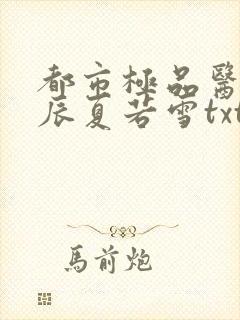 都市極品醫
辰夏若雪txt
馬前炮